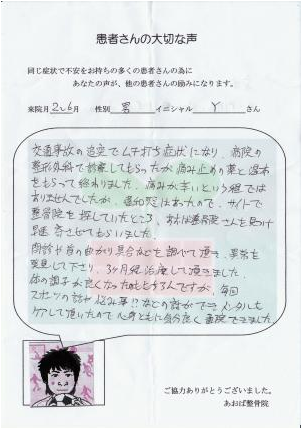 患者さんの大切な声
同じ症状で不安をお持ちの多くの患者さんの為に
あなたの声が、他の患者さんの励みになります。
来院月 2〜6月 性別 男 イニシャル Y さん
交通事故の追突でムチ打ち症状になり、病院の
整形外科で診察してもらったが痛み止めの薬と湿布
をもらって終わりました。痛みが辛いという程では
ありませんでしたが、違和感はあったので、サイトで
整骨院を探していたところ、あおば整骨院さんを見つけ
早速 寄させてもらいました。
問診や首の曲がり具合などを調べて頂き、異常を
発見して下さり、3ヶ月位治療して頂きました。
体の調子が良くなったのももちろんですが、毎回
スポーツの話や悩み事!?などの話ができメンタルも
ケアして頂いたので心身ともに気分良く通院できました
ご協力ありがとうございました。
あおば整骨院